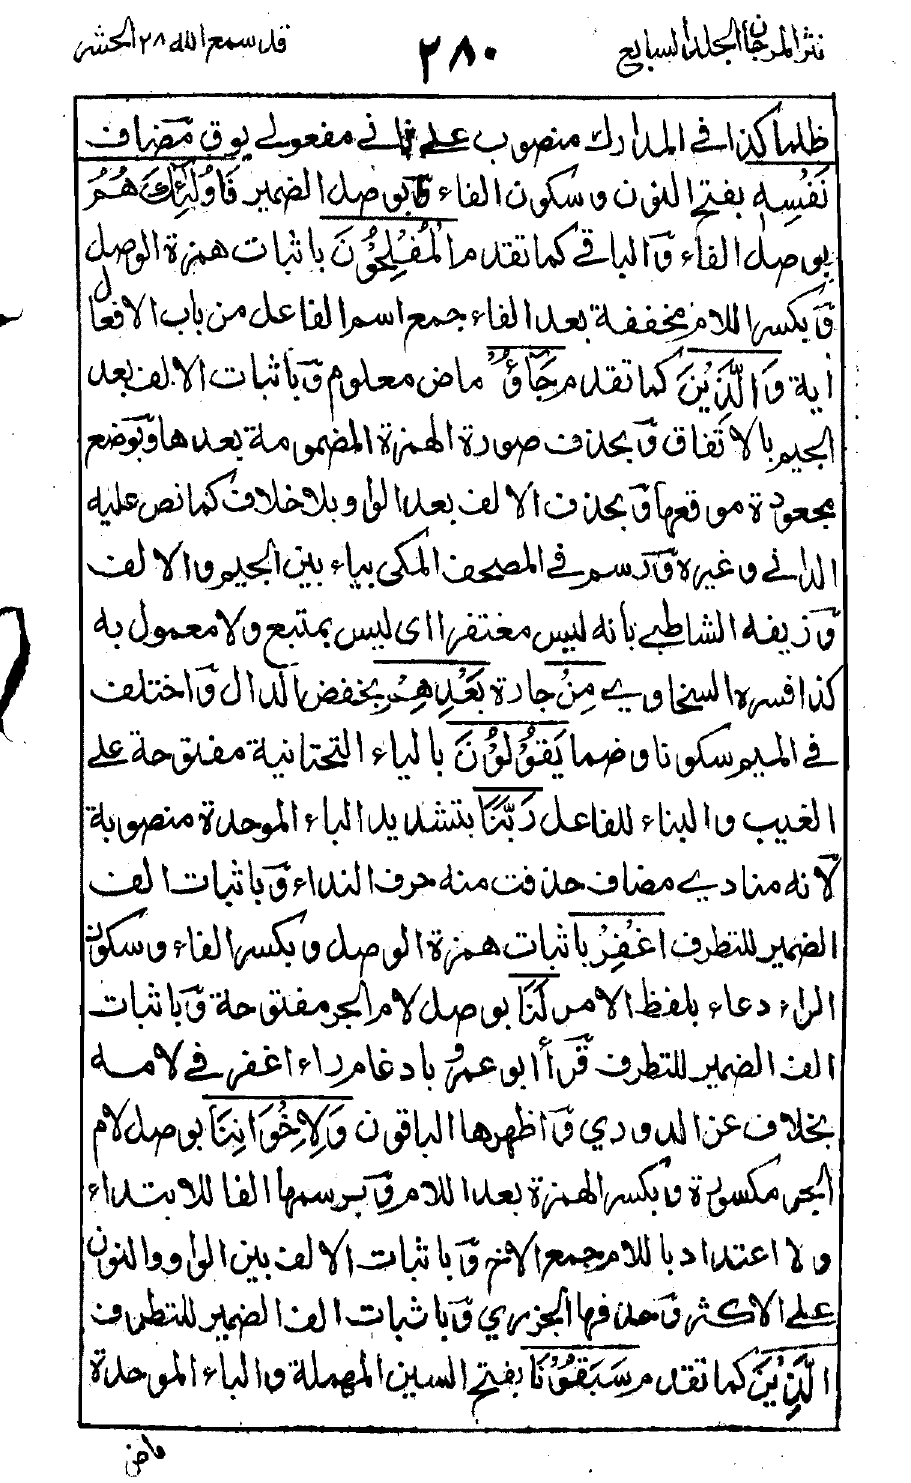 نثر المرجان الجلد السابع ٢٨٠ قد سمع الله ٢٨ الحشر
ظلما كذا في المدارك منصوب على ثاني مفعولي يوق مضاف
نَفْسِهٖ بفتح النون و سكون الفاء وٓبوصل الضمير فَاُولٰٓئِكَ هُمُ
بوصل الفاء وٓالباقي كما تقدم الْمُفْلِحُوْنَ باثبات همزة الوصل
وٓبكسر اللام مخففة بعد الفاء جمع اسم الفاعل من باب الافعال
اٰية وَالَّذِيْنَ كما تقدم جَآءُوْ ماض معلوم وٓباثبات الالف بعد
الجيم بالاتفاق وٓبحذف صورة الهمزة المضمومة بعدها وٓبوضع
مجعودة موقعها وٓبحذف الالف بعد الواو بلا خلاف كما نص عليه
الداني و غيره وٓرسم في المصحف المكى بياء بين الجيم و الالف
وٓزيفه الشاطبي بأنه ليس مغتفرا اى ليس بمتبع و لا معمول به
كذا فسره السخاوي مِنْ جارة بَعْدِهِمْ بخفض الدال وٓاختلف
في الميم سكونا و ضما يَقُوْلُوْنَ بالياء التحتانية مفتوحة على
الغيب و البناء للفاعل رَبَّنَا بتشديد الباء الموحدة منصوبة
لانه منادي مضاف حذفت منه حرف النداء وٓباثبات الف
الضمير للتطرف اغْفِرْ باثبات همزة الوصل و بكسر الفاء و سكون
الراء دعاء بلفظ الامر لَنَا بوصل لام الجر مفتوحة وٓباثبات
الف الضمير للتطرف قرأ أبو عمرو بادغام راء اغفر في لامه
بخلاف عن الدوري وٓاظهرها الباقون وَلِاِخْوَانِنَا بوصل لام
الجر مكسورة وٓبكسر الهمزة بعد اللام وٓبرسمها الفا للابتداء
و لا اعتداد باللام جمع الاخ وٓباثبات الالف بين الواو و النون
على الاكثر وٓحذفها الجزري وٓباثبات الف الضمير للتطرف
الَّذِيْنَ كما تقدم سَبَقُوْنَا بفتح السين المهملة و الباء الموحدة
ماض